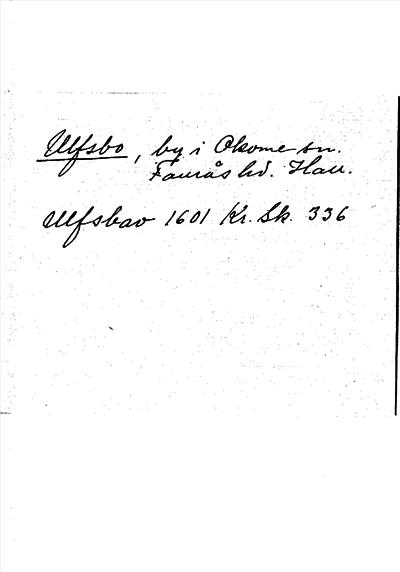 Ulfsbo, by i Okome sn.
Faurås hd. Hall.
Ulfsbao 1601 Kr. Sk. 336